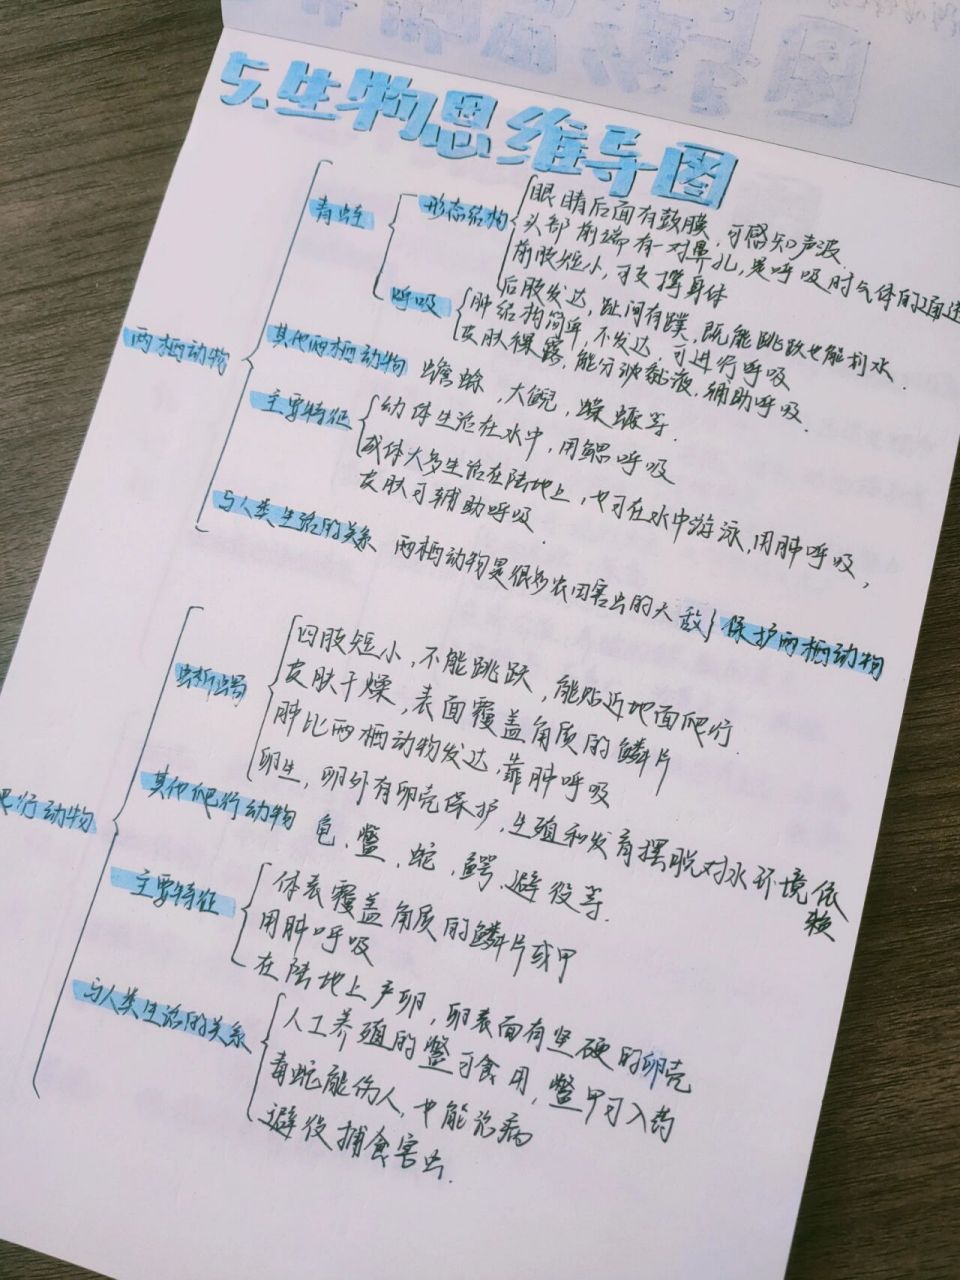 5.生物思维导图
两栖动物
青蛙
形态结构
眼睛后面有鼓膜,可感知声波
头部前端有一对鼻孔,是呼吸时气体的通道
前肢短小,可支撑身体
后肢发达,趾间有蹼,既能跳跃也能划水.
呼吸
肺结构简单,不发达,可进行呼吸
皮肤裸露,能分泌黏液,辅助呼吸.
其他两栖动物 蟾蜍,大鲵,蝾螈等.
主要特征
幼体生活在水中,用鳃呼吸
成体大多生活在陆地上,也可在水中游泳,用肺呼吸,
皮肤可辅助呼吸.
与人类生活的关系 两栖动物是很多农田害虫的大敌}保护两栖动物
爬行动物
蜥蜴
四肢短小,不能跳跃,能贴近地面爬行.
皮肤干燥,表面覆盖角质的鳞片
肺比两栖动物发达,靠肺呼吸
卵生,卵外有卵壳保护,生殖和发育摆脱对水环境依
赖
其他爬行动物 龟、鳖、蛇、鳄、避役等.
主要特征
体表覆盖角质的鳞片或甲
用肺呼吸
在陆地上产卵,卵表面有坚硬的卵壳
与人类生活的关系
人工养殖的鳖可食用,鳖甲可入药
毒蛇能伤人,也能治病
避役捕食害虫.